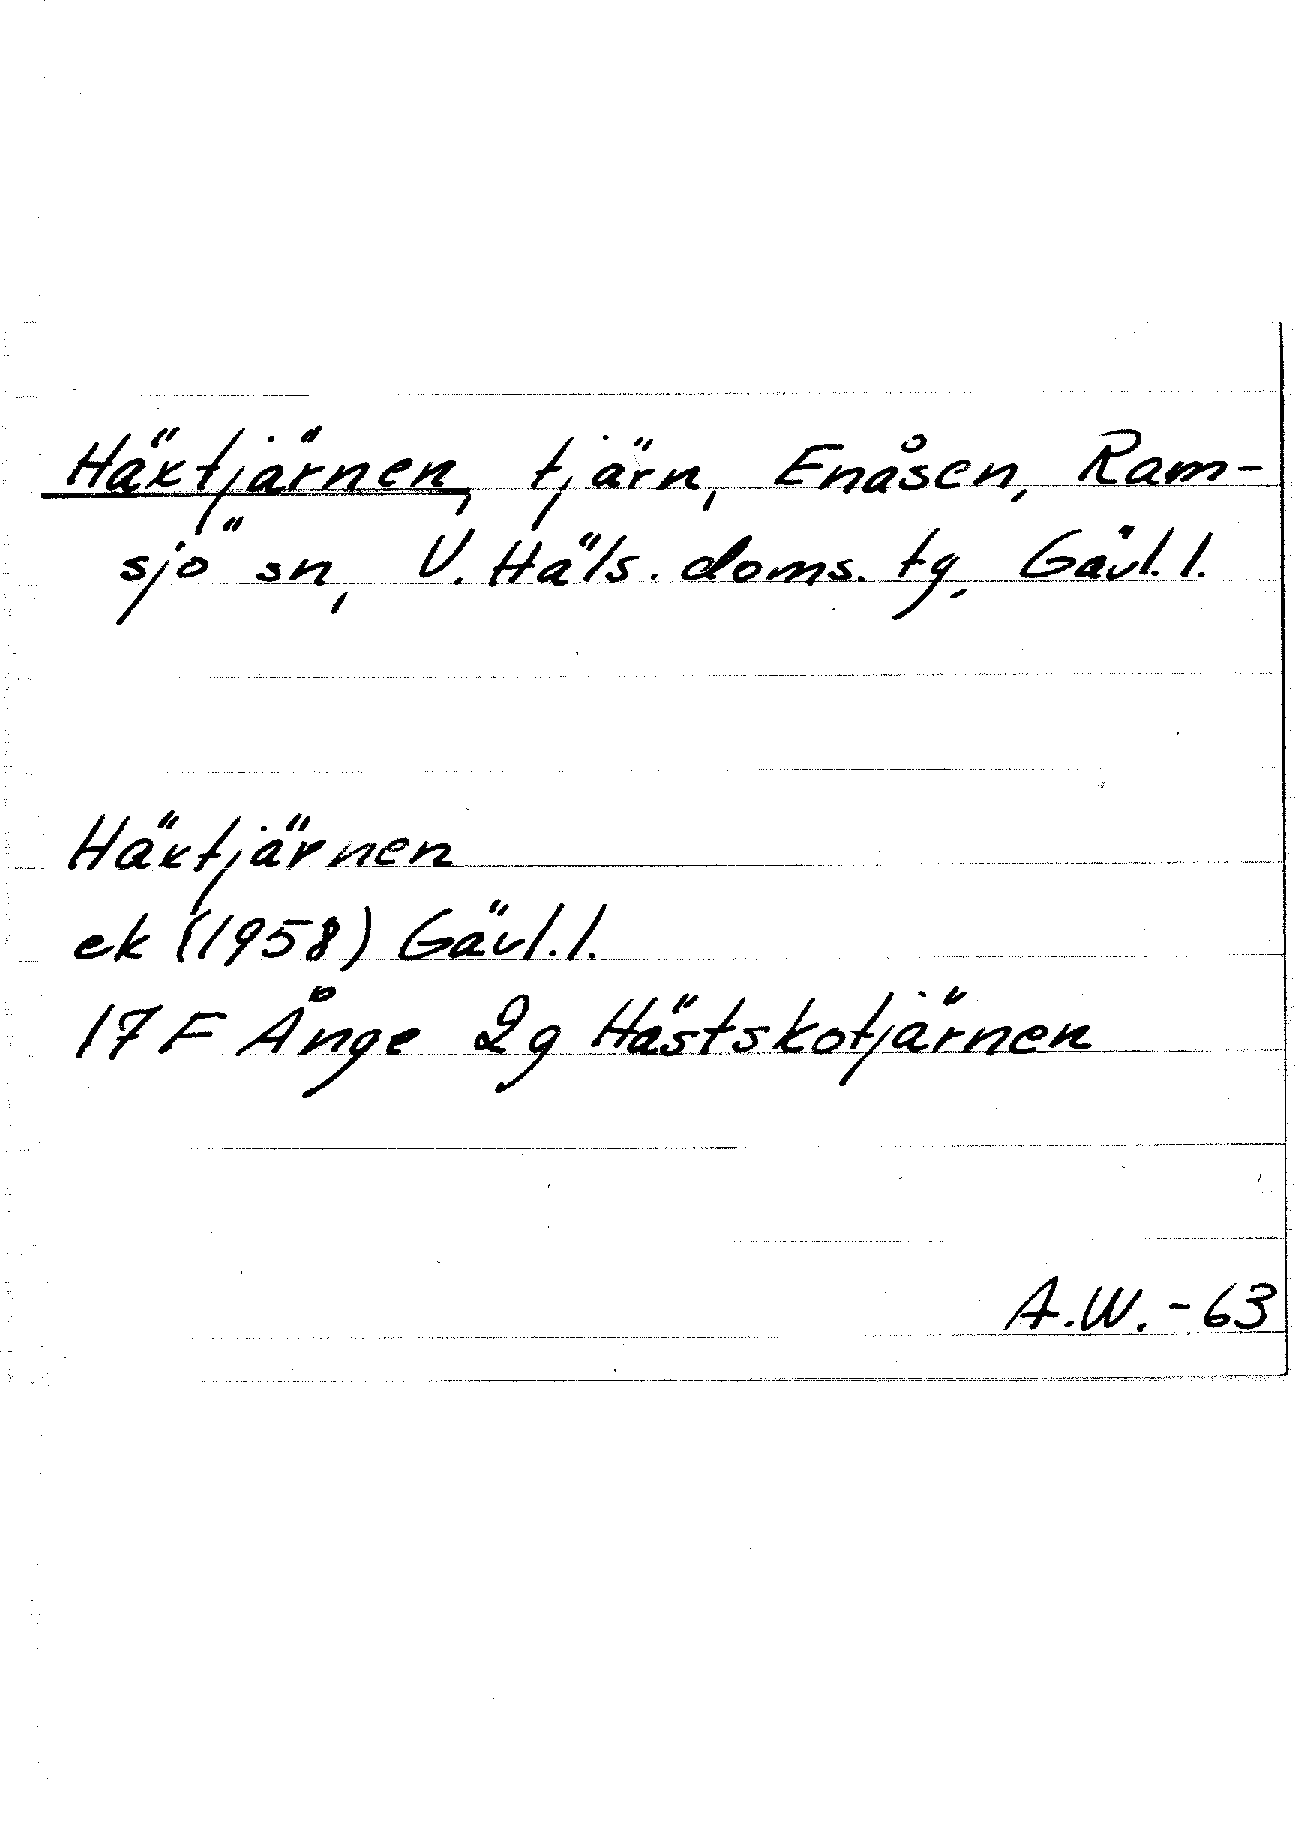 Häxtjärnen, tjärn, Enåsen, Ram-
sjö sn, V. Häls. doms. tg, Gävl. l.
Häxtjärnen
ek (1958) Gävl. l.
17 F Ånge 2g Hästskotjärnen
A.W. - 63